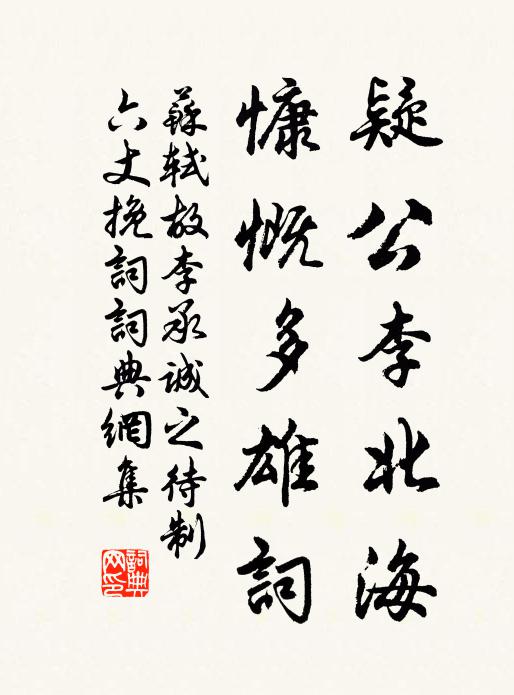 疑公李北海
慷慨多雄詞
蘇軾故李承誠之待制
六丈挽詞詞典網集
詞典网印